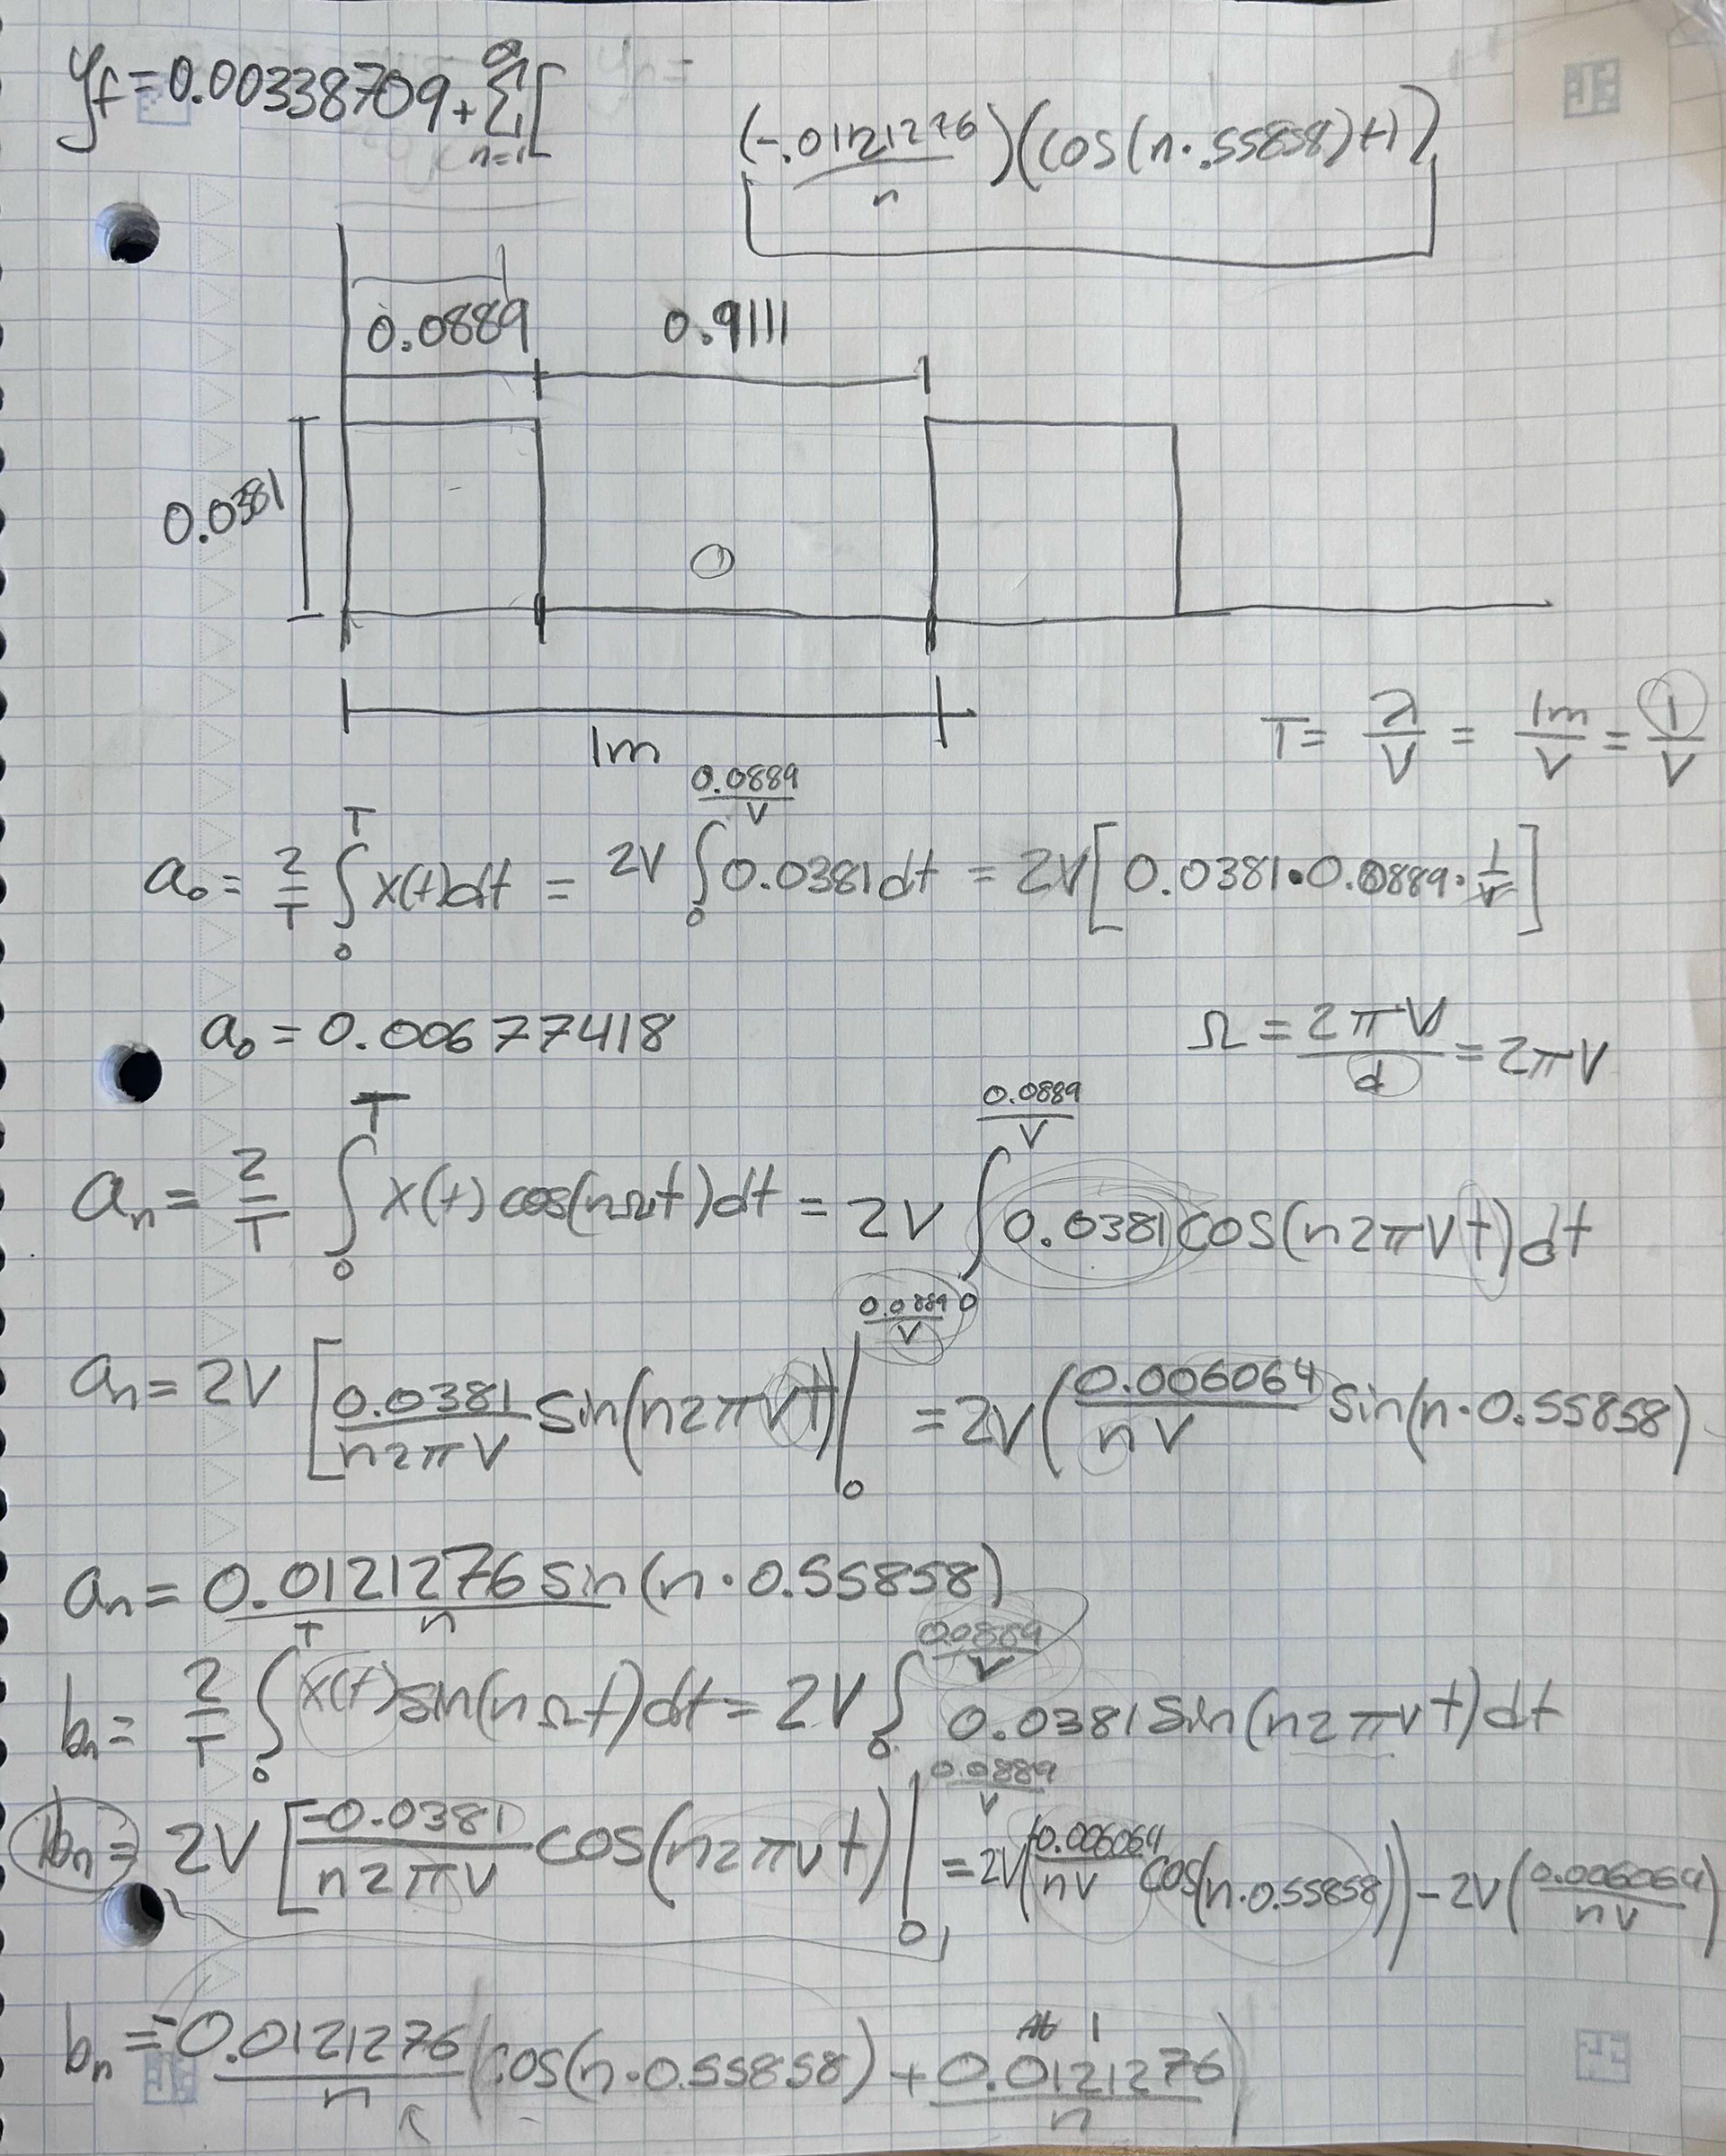 y_f = 0.00338709 + ∞Σn=1 [
(-.0121276/n)(cos(n·.55858)+1)
0.0889 0.9111
0.0381
0
1m
T = λ/V = 1m/V = 1/V
a₀ = 2/T ∫₀ᵀ x(t)dt = 2V ∫₀^(0.0889/V) 0.0381dt = 2V[0.0381·0.0889·1/V]
a₀ = 0.00677418
Ω = 2πV/d = 2πV
aₙ = 2/T ∫₀ᵀ x(t) cos(nΩt)dt = 2V ∫₀^(0.0889/V) 0.0381 cos(n2πVt)dt
aₙ = 2V [0.0381/(n2πV) sin(n2πVt)|₀^(0.0889/V) = 2V(0.006064/(nV) sin(n·0.55858)
aₙ = 0.0121276/n sin(n·0.55858)
bₙ = 2/T ∫₀ᵀ x(t)sin(nΩt)dt = 2V ∫₀^(0.0889/V) 0.0381 sin(n2πVt)dt
bₙ = 2V [-0.0381/(n2πV) cos(n2πVt)|₀^(0.0889/V) = 2V(-0.006064/(nV) cos(n·0.55858)) - 2V(0.006064/(nV))
1
bₙ = -0.0121276/n (cos(n·0.55858) + 0.0121276/n)